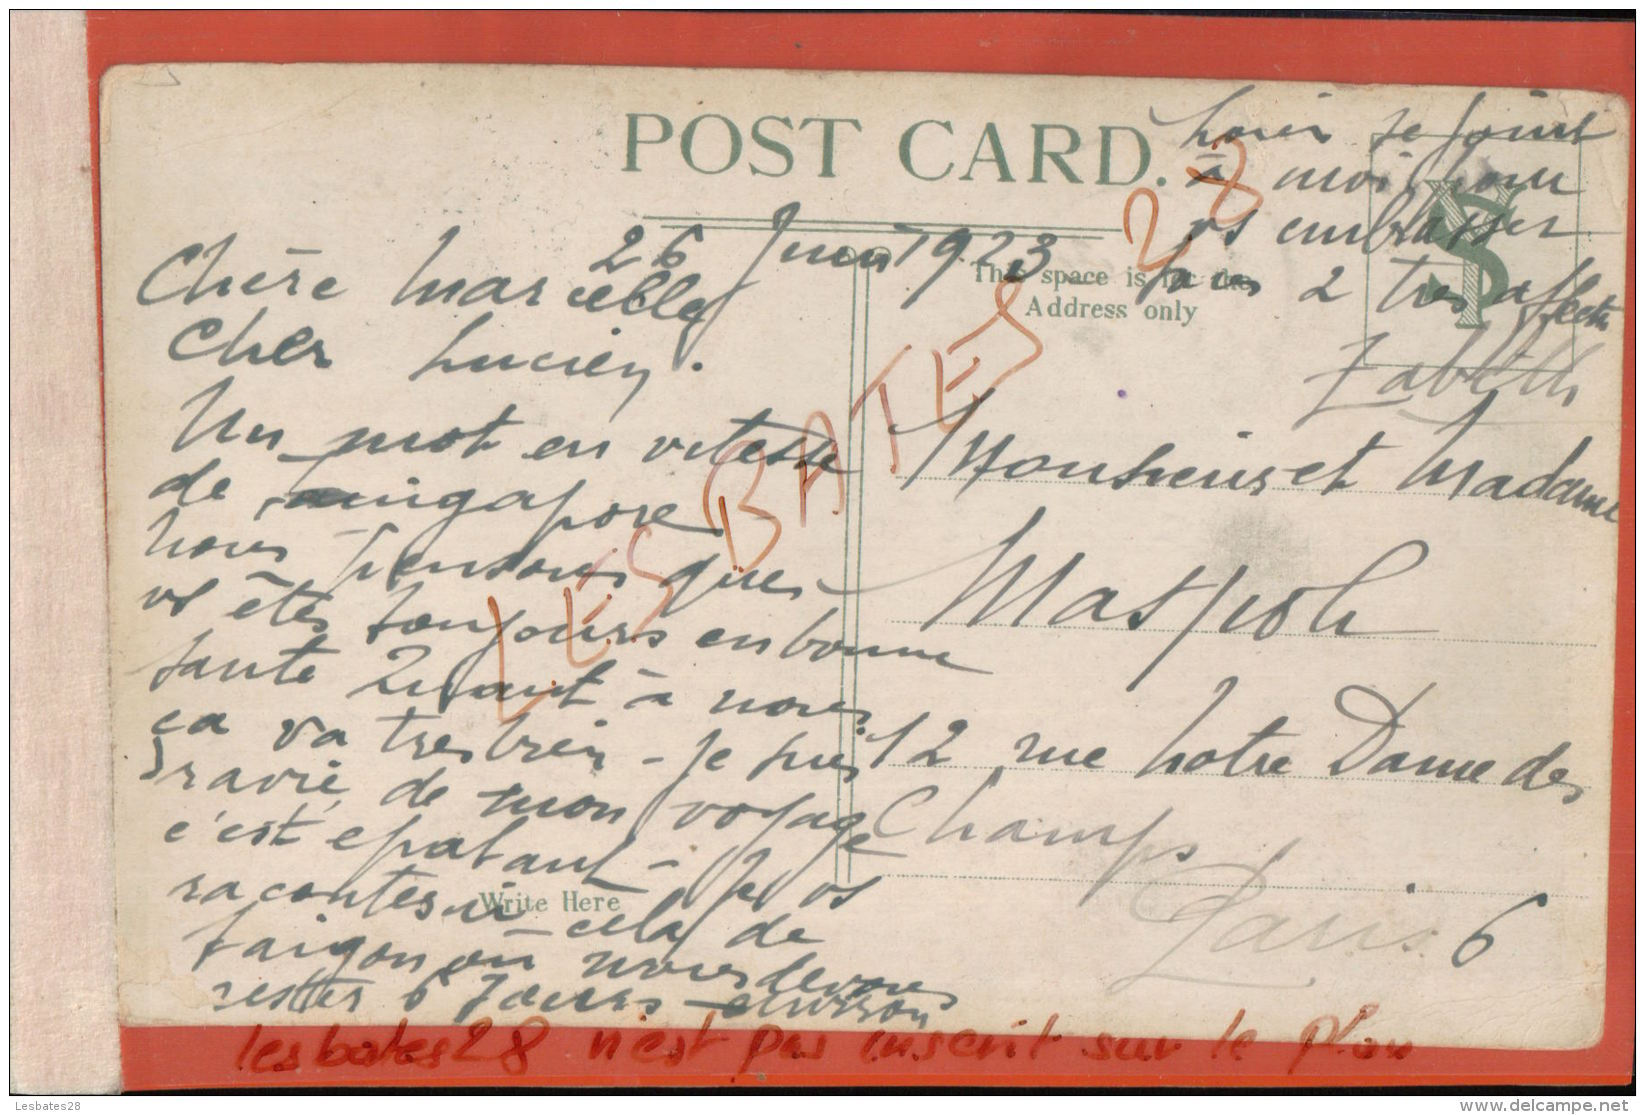 POST CARD.
This space is for the
Address only
Write Here
26 Juin 1923
Chère Marcelle
Cher Lucien.
Un mot en vitesse
de Singapore
nous pensons que
vs êtes toujours en bonne
santé Quant à nous
ça va très bien - Je suis
ravie de mon voyage
c'est épatant - Je vs
raconterai cela de
Saigon où nous devons
rester 6 jours environ
se joint
à moi pour
vs embrasser
ts les 2 très affectt
Zabeth
Monsieur et Madame
Maspoli
12 rue Notre Dame des
Champs
Paris 6
LES BATES 28
lesbates28 n'est pas inscrit sur le plan
Lesbates28
www.delcampe.net